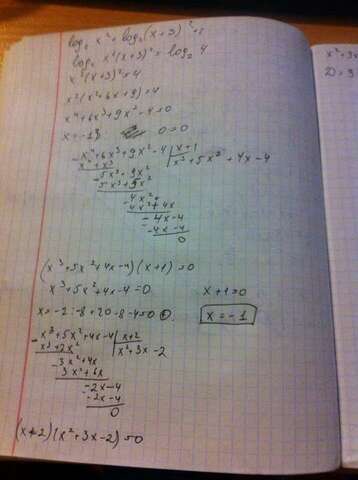 log₂ x² + log₂(x+3)² = 2
log₂ x²(x+3)² = log₂ 4
x²(x+3)² = 4
x²(x²+6x+9) = 4
x⁴+6x³+9x²-4=0
x = -1 0=0
x⁴+6x³+9x²-4 | x+1
x⁴+x³ x³+5x²+4x-4
5x³+9x²
5x³+5x²
4x²
4x²+4x
-4x-4
-4x-4
0
(x³+5x²+4x-4)(x+1)=0
x³+5x²+4x-4=0 x+1=0
x=-2: -8+20-8-4=0 x=-1
x³+5x²+4x-4 | x+2
x³+2x² x²+3x-2
3x²+4x
3x²+6x
-2x-4
-2x-4
0
(x+2)(x²+3x-2)=0
x²+3x
D=9